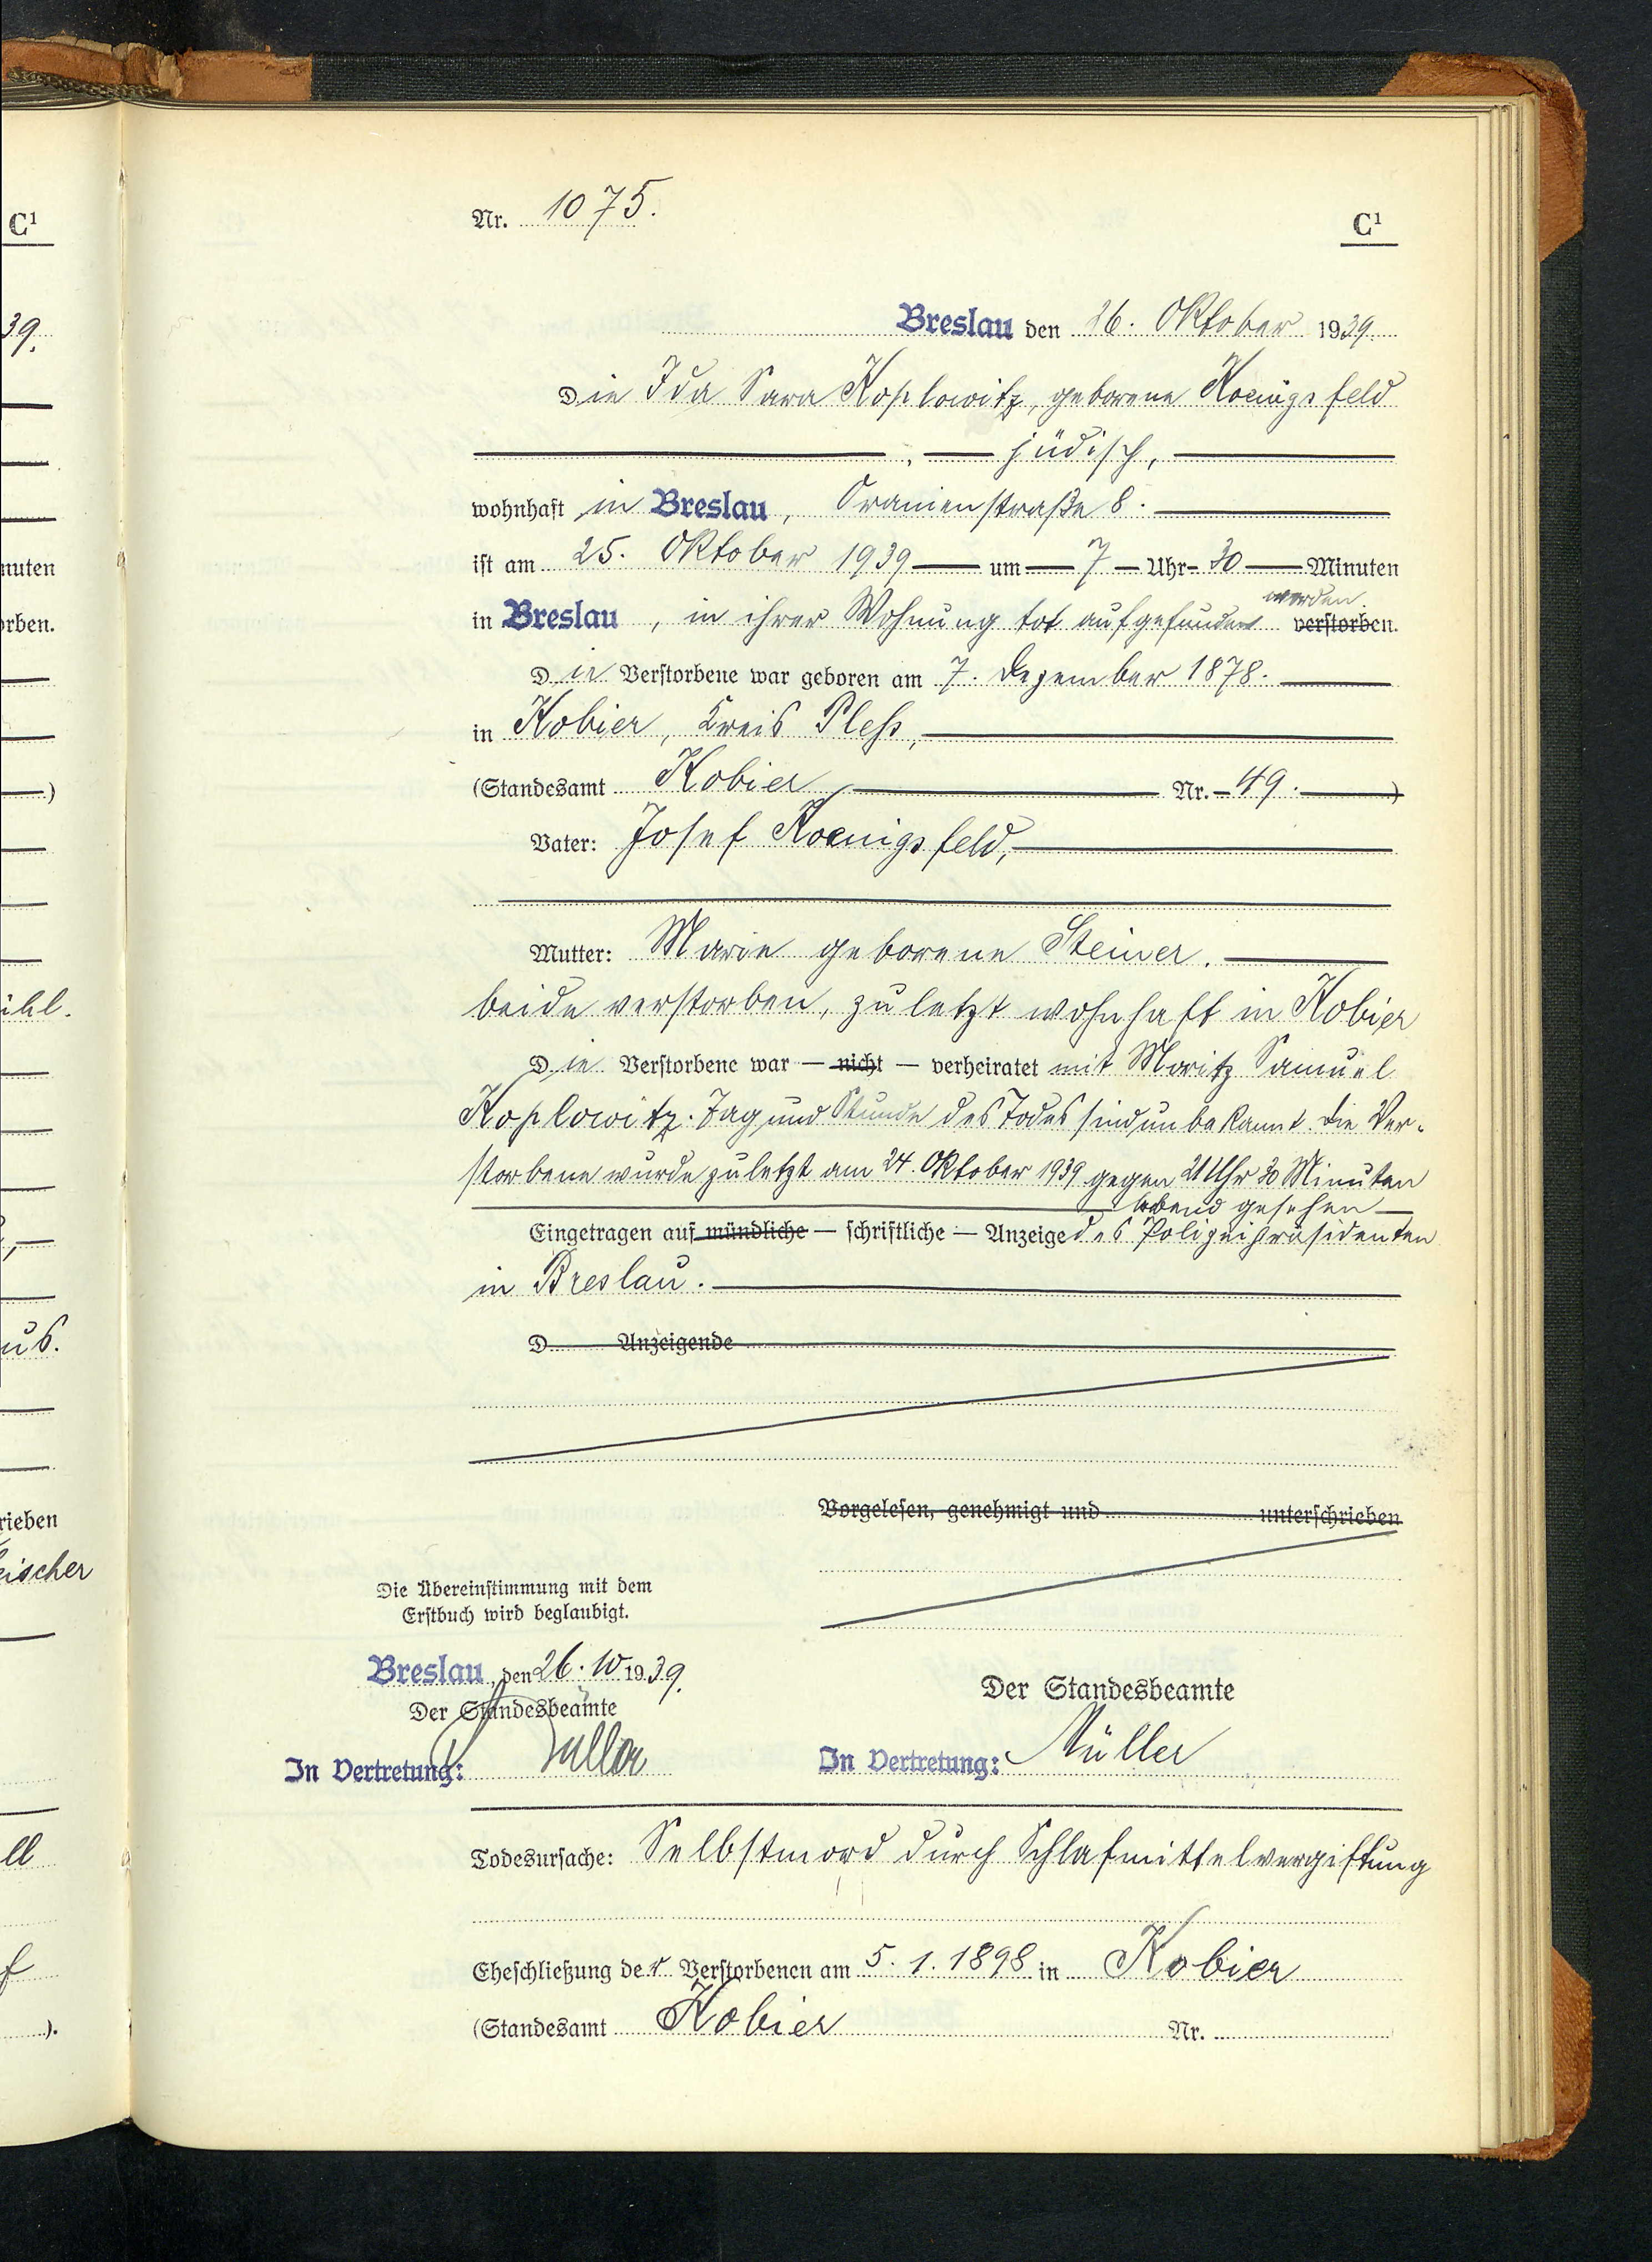 Nr. 1075.
C¹
Breslau den 26. Oktober 1939.
Die Ida Sara Koplowitz, geborene Koenigsfeld
, jüdisch,
wohnhaft in Breslau, Oranienstraße 8.
ist am 25. Oktober 1939 um 7 Uhr 30 Minuten
worden.
in Breslau, in ihrer Wohnung tot aufgefunden verstorben.
Die Verstorbene war geboren am 7. Dezember 1878.
in Kobier, Kreis Pleß,
(Standesamt Kobier Nr. 49.)
Vater: Josef Koenigsfeld,
Mutter: Marie geborene Steiner.
beide verstorben, zuletzt wohnhaft in Kobier
Die Verstorbene war — nicht — verheiratet mit Moritz Samuel
Koplowitz. Tag und Stunde des Todes sind unbekannt. Die Ver-
storbene wurde zuletzt am 24. Oktober 1939 gegen 21 Uhr 30 Minuten
lebend gesehen
Eingetragen auf mündliche — schriftliche — Anzeige des Polizeipräsidenten
in Breslau.
D Anzeigende
Vorgelesen, genehmigt und unterschrieben
Die Übereinstimmung mit dem
Erstbuch wird beglaubigt.
Breslau, den 26. 10 1939.
Der Standesbeamte
In Vertretung:
Der Standesbeamte
In Vertretung: Müller
Todesursache: Selbstmord durch Schlafmittelvergiftung
Eheschließung der Verstorbenen am 5. 1. 1898 in Kobier
(Standesamt Kobier Nr.
C¹
39.
nuten
orben.
)
us.
rieben
ischer
ll
f
).